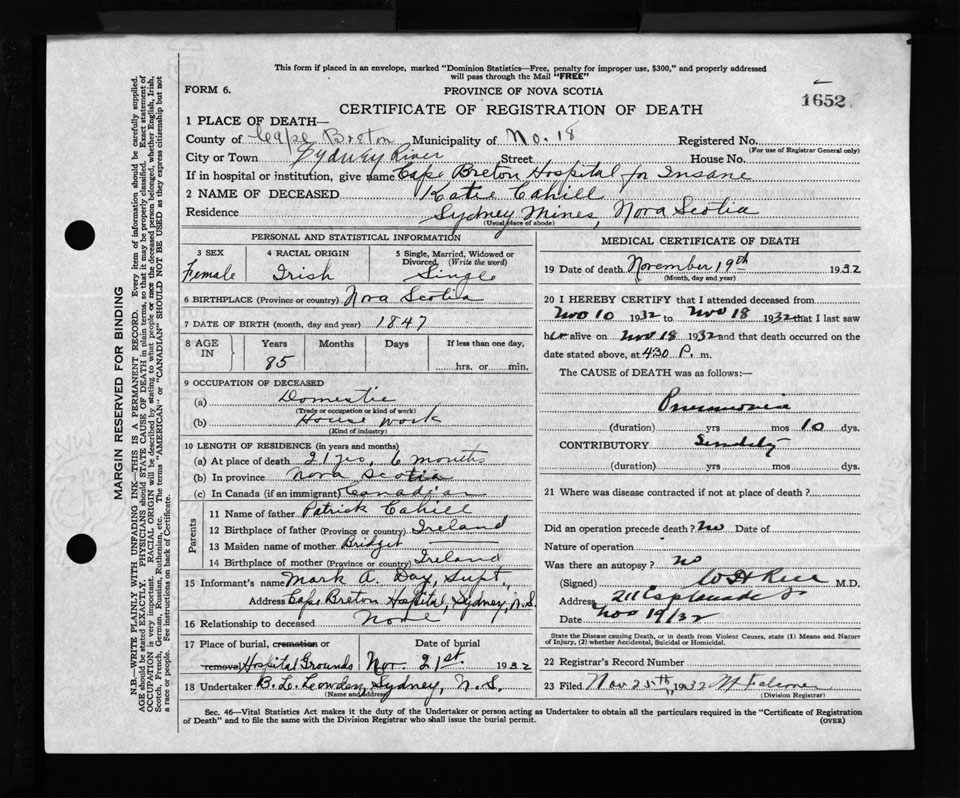 This form if placed in an envelope, marked "Dominion Statistics—Free, penalty for improper use, $300," and properly addressed
will pass through the Mail "FREE"
FORM 6.
PROVINCE OF NOVA SCOTIA
1652
CERTIFICATE OF REGISTRATION OF DEATH
1 PLACE OF DEATH—
County of Cape Breton Municipality of No. 18 Registered No.
(For use of Registrar General only)
City or Town Sydney River Street House No.
If in hospital or institution, give name Cape Breton Hospital for Insane
2 NAME OF DECEASED Katie Cahill
Residence Sydney Mines, Nova Scotia
(Usual place of abode)
PERSONAL AND STATISTICAL INFORMATION
3 SEX 4 RACIAL ORIGIN 5 Single, Married, Widowed or
Divorced (Write the word)
Female Irish Single
6 BIRTHPLACE (Province or country) Nova Scotia
7 DATE OF BIRTH (month, day and year) 1847
8 AGE IN Years Months Days If less than one day,
85 hrs. or min.
9 OCCUPATION OF DECEASED
(a) Domestic
(Trade or occupation or kind of work)
(b) House work
(Kind of industry)
10 LENGTH OF RESIDENCE (in years and months)
(a) At place of death 21 yrs, 6 months
(b) In province Nova Scotia
(c) In Canada (if an immigrant) Canadian
Parents
11 Name of father Patrick Cahill
12 Birthplace of father (Province or country) Ireland
13 Maiden name of mother Bridget
14 Birthplace of mother (Province or country) Ireland
15 Informant's name Mark A. Day, Supt.,
Address Cape Breton Hospital, Sydney, N.S.
16 Relationship to deceased None
17 Place of burial, cremation or Date of burial
removal Hospital Grounds Nov. 21st. 1932
18 Undertaker Sydney, N.S.
(Name and address)
MEDICAL CERTIFICATE OF DEATH
19 Date of death November 19th 1932
(Month, day and year)
20 I HEREBY CERTIFY that I attended deceased from
Nov 10 1932 to Nov 18 1932 that I last saw
her alive on Nov 18 1932 and that death occurred on the
date stated above, at 430 P. m.
The CAUSE OF DEATH was as follows:—
Pneumonia
(duration) yrs mos 10 dys.
CONTRIBUTORY Senility
(duration) yrs mos dys.
21 Where was disease contracted if not at place of death?
Did an operation precede death? no Date of
Nature of operation
Was there an autopsy? no
(Signed) M.D.
Address 211 Esplanade
Date Nov 19/32
State the Disease causing Death, or in death from Violent Causes, state (1) Means and Nature
of Injury, (2) whether Accidental, Suicidal or Homicidal.
22 Registrar's Record Number
23 Filed Nov 25th, 1932
(Division Registrar)
Sec. 46—Vital Statistics Act makes it the duty of the Undertaker or person acting as Undertaker to obtain all the particulars required in the "Certificate of Registration
of Death" and to file the same with the Division Registrar who shall issue the burial permit.
(OVER)
MARGIN RESERVED FOR BINDING
N.B.—WRITE PLAINLY WITH UNFADING INK—THIS IS A PERMANENT RECORD. Every item of information should be carefully supplied.
AGE should be stated EXACTLY. PHYSICIANS should STATE CAUSE OF DEATH in plain terms, so that it may be properly classified. Exact statement of
OCCUPATION is very important. RACIAL ORIGIN will be described by stating to what people or race the deceased person belonged, whether English, Irish,
Scotch, French, German, Russian, Ruthenian, etc. The terms "AMERICAN" or "CANADIAN" SHOULD NOT BE USED as they express citizenship but not
a race or people. See instructions on back of Certificate.